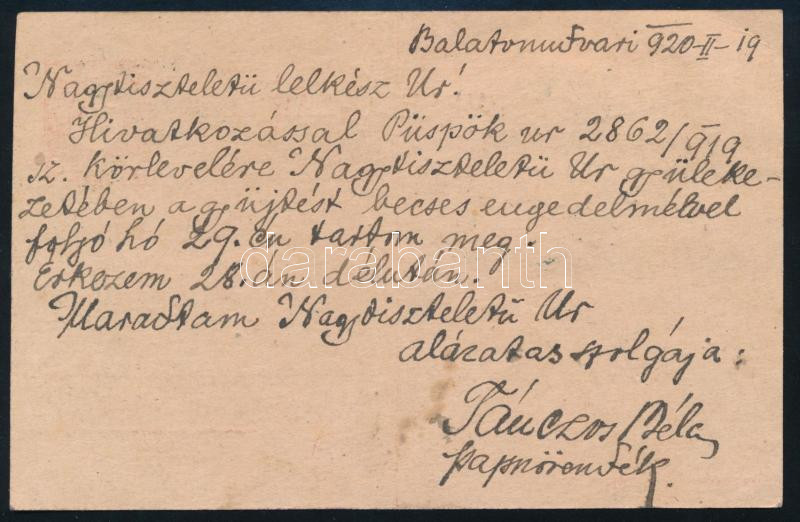 Balatonudvari 920-II-19
Nagytiszteletü lelkész Ur!
Hivatkozással Püspök ur 2862/919
sz. körlevelére Nagytiszteletü Ur gyüleke-
zetében a gyüjtést becses engedelmével
folyó hó 29.én tartom meg.
Érkezem 28.án délután.
Maradtam Nagytiszteletü Ur
alázatas szolgája:
Tánczos Béla
papnövendék.
darabanth